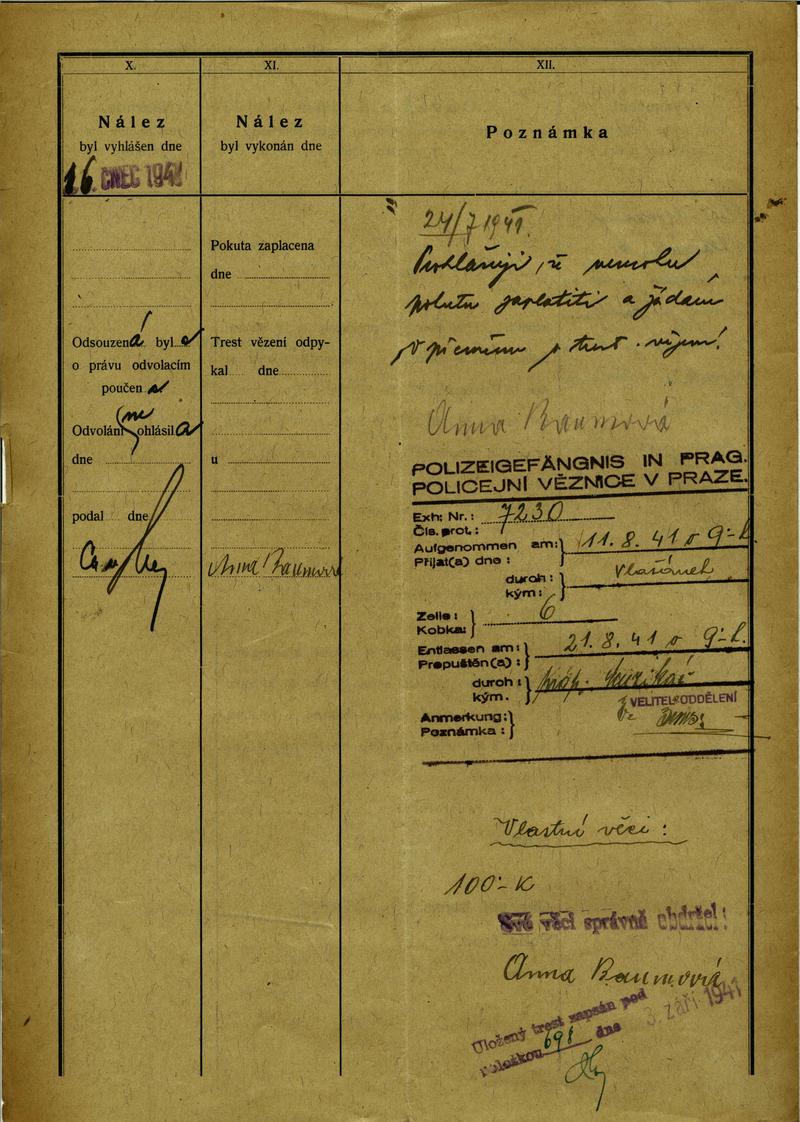 X.
Nález
byl vyhlášen dne
16. ČNEC 1941
Odsouzená byla
o právu odvolacím
poučena
Odvolání neohlásila
dne
podal dne
XI.
Nález
byl vykonán dne
Pokuta zaplacena
dne
Trest vězení odpy-
kal dne
u
Anna Baumová
XII.
Poznámka
24/7 1941.
Prohlašuji, že nemohu
pokutu zaplatiti a žádám
o přeměnu v trest
Anna Baumová
POLIZEIGEFÄNGNIS IN PRAG.
POLICEJNÍ VĚZNICE V PRAZE.
Exh: Nr.: 7230
Čís. prot.:
Aufgenommen am: 11. 8. 41 o 9-h
Přijat(a) dne:
durch:
kým:
Zelle: 6
Kobka:
Entlassen am: 21. 8. 41 o 9-h.
Propuštěn(a):
durch:
kým.
VELITEL ODDĚLENÍ
Anmerkung:
Poznámka:
Vlastní věci:
100·- K
Své věci správně obdržel:
Anna Baumová
Uložený trest zapsán pod
položkou 698 dne 3. září 1941